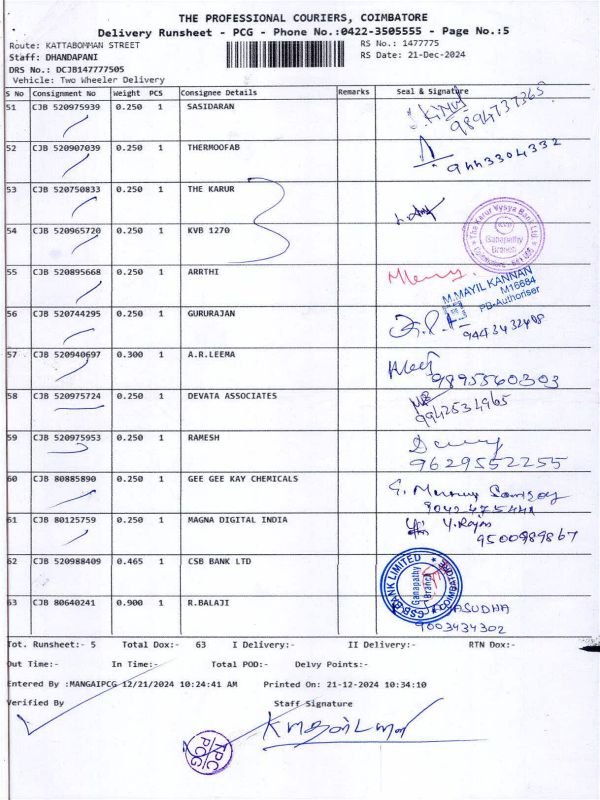 THE PROFESSIONAL COURIERS, COIMBATORE
Delivery Runsheet - PCG - Phone No.:0422-3505555 - Page No.:5
Route: KATTABOMMAN STREET RS No.: 1477775
Staff: DHANDAPANI RS Date: 21-Dec-2024
DRS No.: DCJB147777505
Vehicle: Two Wheeler Delivery
S No Consignment No Weight PCS Consignee Details Remarks Seal & Signature
51 CJB 520975939 0.250 1 SASIDARAN
9894737365
52 CJB 520907039 0.250 1 THERMOOFAB
9443304332
53 CJB 520750833 0.250 1 THE KARUR
The Karur Vysya Bank Ltd
Ganapathy
Branch
54 CJB 520965720 0.250 1 KVB 1270
55 CJB 520895668 0.250 1 ARRTHI
M.MAYIL KANNAN
M16684
PB-Authoriser
56 CJB 520744295 0.250 1 GURURAJAN
57 CJB 520940697 0.300 1 A.R.LEEMA
9895560303
58 CJB 520975724 0.250 1 DEVATA ASSOCIATES
9942534965
59 CJB 520975953 0.250 1 RAMESH
9629552255
60 CJB 80885890 0.250 1 GEE GEE KAY CHEMICALS
61 CJB 80125759 0.250 1 MAGNA DIGITAL INDIA
9500989867
62 CJB 520988409 0.465 1 CSB BANK LTD
CSB BANK LIMITED
COIMBATORE
Ganapathy
Branch
63 CJB 80640241 0.900 1 R.BALAJI
VASUDHA
9003434302
Tot. Runsheet:- 5 Total Dox:- 63 I Delivery:- II Delivery:- RTN Dox:-
Out Time:- In Time:- Total POD:- Delvy Points:-
Entered By :MANGAIPCG 12/21/2024 10:24:41 AM Printed On: 21-12-2024 10:34:10
Verified By Staff Signature